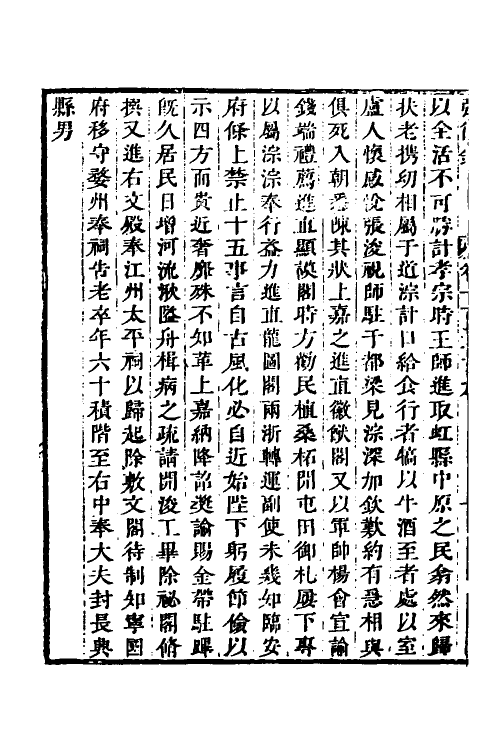 以全活不可勝計孝宗時王師進取虹縣中原之民翕然來歸
扶老携幼相屬于道淙計口給食行者犒以牛酒至者處以室
廬人懷感悅張浚視師駐于都梁見淙深加欽歎約有急相與
俱死入朝悉陳其狀上嘉之進直徽猷閣又以軍帥楊會宣諭
錢端禮薦進直顯謨閣時方勸民植桑柘開屯田御札屢下專
以屬淙淙奉行益力進直龍圖閣兩浙轉運副使未幾知臨安
府條上禁止十五事言自古風化必自近始陛下躬履節儉以
示四方而貴近奢靡殊不知革上嘉納降詔奬諭賜金帶駐蹕
旣久居民日增河流湫隘舟楫病之疏請開浚工畢除祕閣脩
撰又進右文殿奉江州太平祠以歸起除敷文閣待制知寧國
府移守婺州奉祠告老卒年六十積階至右中奉大夫封長興
縣男